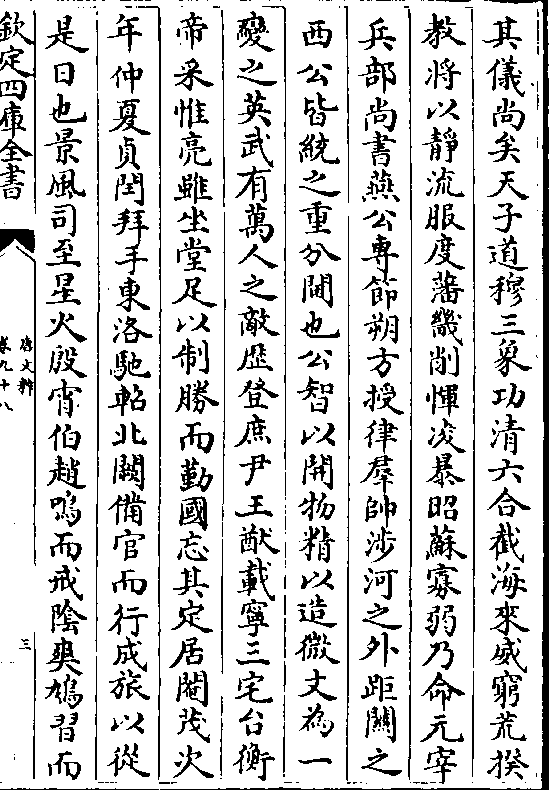 其儀尚矣天子道穆三象功清六合截海來威窮荒揆
教將以靜流服度藩畿削惲凌暴昭蘇寡弱乃命元宰
兵部尚書燕公專節朔方授律羣帥涉河之外距關之
西公皆統之重分閫也公智以開物精以造微文為一
變之英武有萬人之敵歴登庶尹王猷載寧三宅台衡
帝采惟亮雖坐堂足以制勝而勤國忘其定居閹茂次
年仲夏貞閏拜手東洛馳軺北闕備官而行成旅以從
是日也景風司至星火殷宵伯趙鳴而戒陰爽鳩習而
欽定四庫全書
唐文粹
卷九十八
三